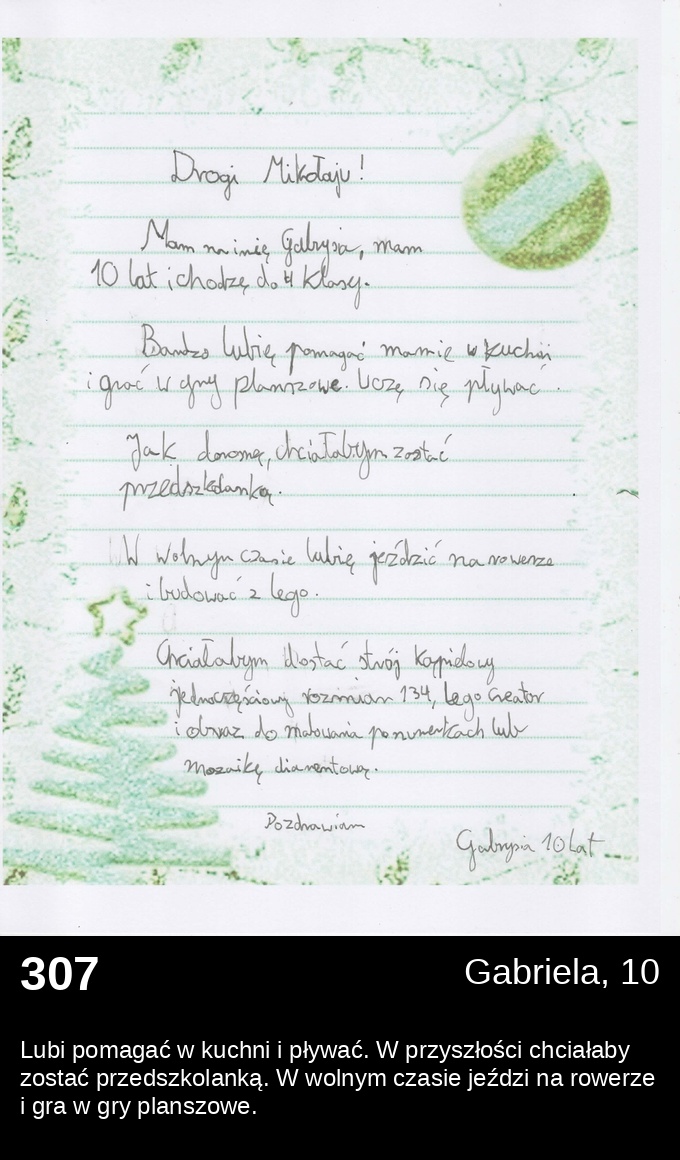 Drogi Mikołaju!
Mam na imię Gabrysia, mam
10 lat i chodzę do 4 klasy.
Bardzo lubię pomagać mamie w kuchni
i grać w gry planszowe. Uczę się pływać.
Jak dorosnę, chciałabym zostać
przedszkolanką.
W wolnym czasie lubię jeździć na rowerze
i budować z lego.
Chciałabym dostać strój kąpielowy
jednoczęściowy rozmiar 134, Lego Creator
i obraz do malowania po numerkach lub
mozaikę diamentową.
Pozdrawiam
Gabrysia 10 lat
307
Gabriela, 10
Lubi pomagać w kuchni i pływać. W przyszłości chciałaby
zostać przedszkolanką. W wolnym czasie jeździ na rowerze
i gra w gry planszowe.